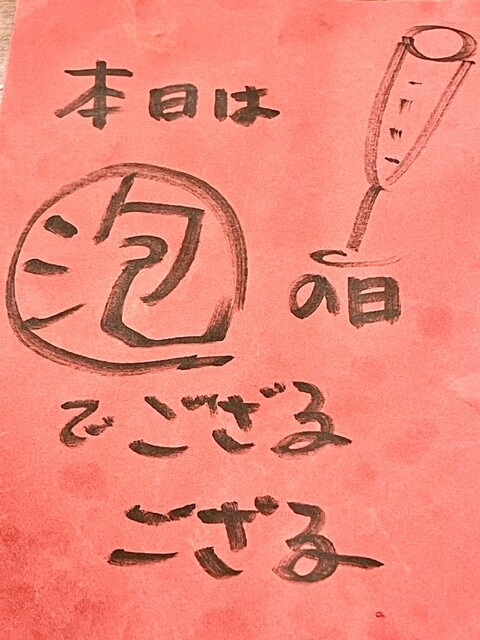 本日は
泡の日
でござる
ござる